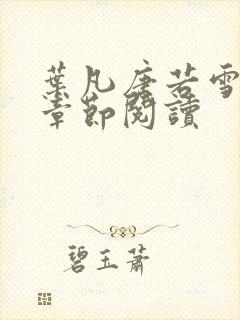 葉凡唐若雪
章節閱讀
碧玉蕭